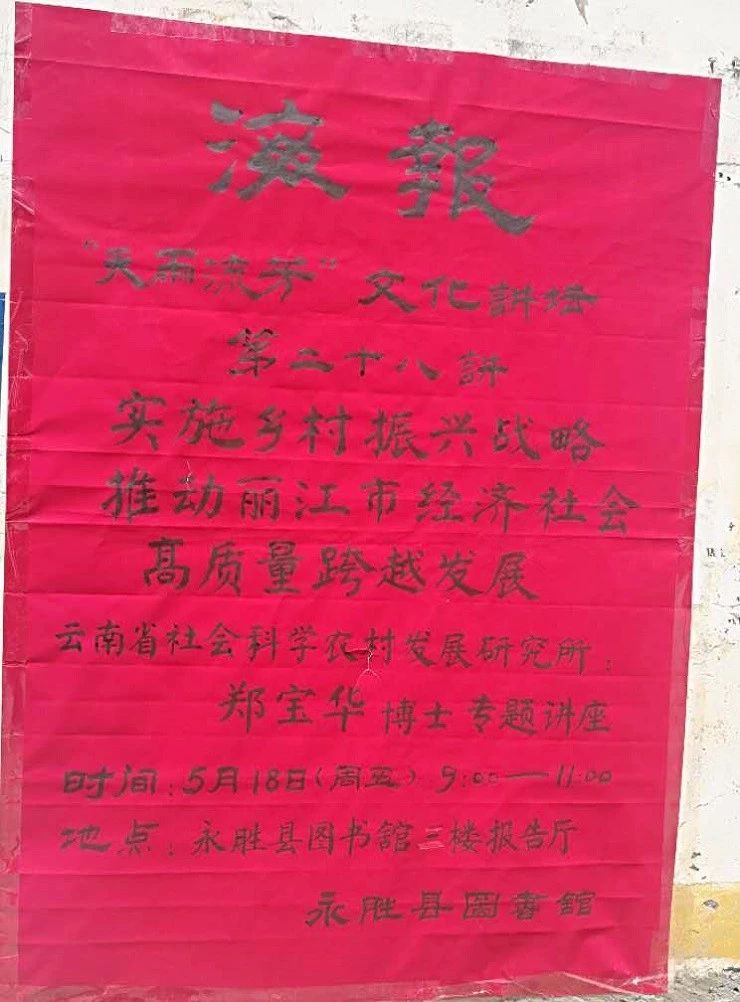 海報
"天雨流芳"文化講坛
第二十八講
实施乡村振兴战略
推动丽江市经济社会
高质量跨越发展
云南省社会科学农村发展研究所:
郑宝华 博士 专题讲座
时间:5月18日(周五) 9:00—11:00
地点:永胜县图书館三楼报告厅
永胜县圖書館